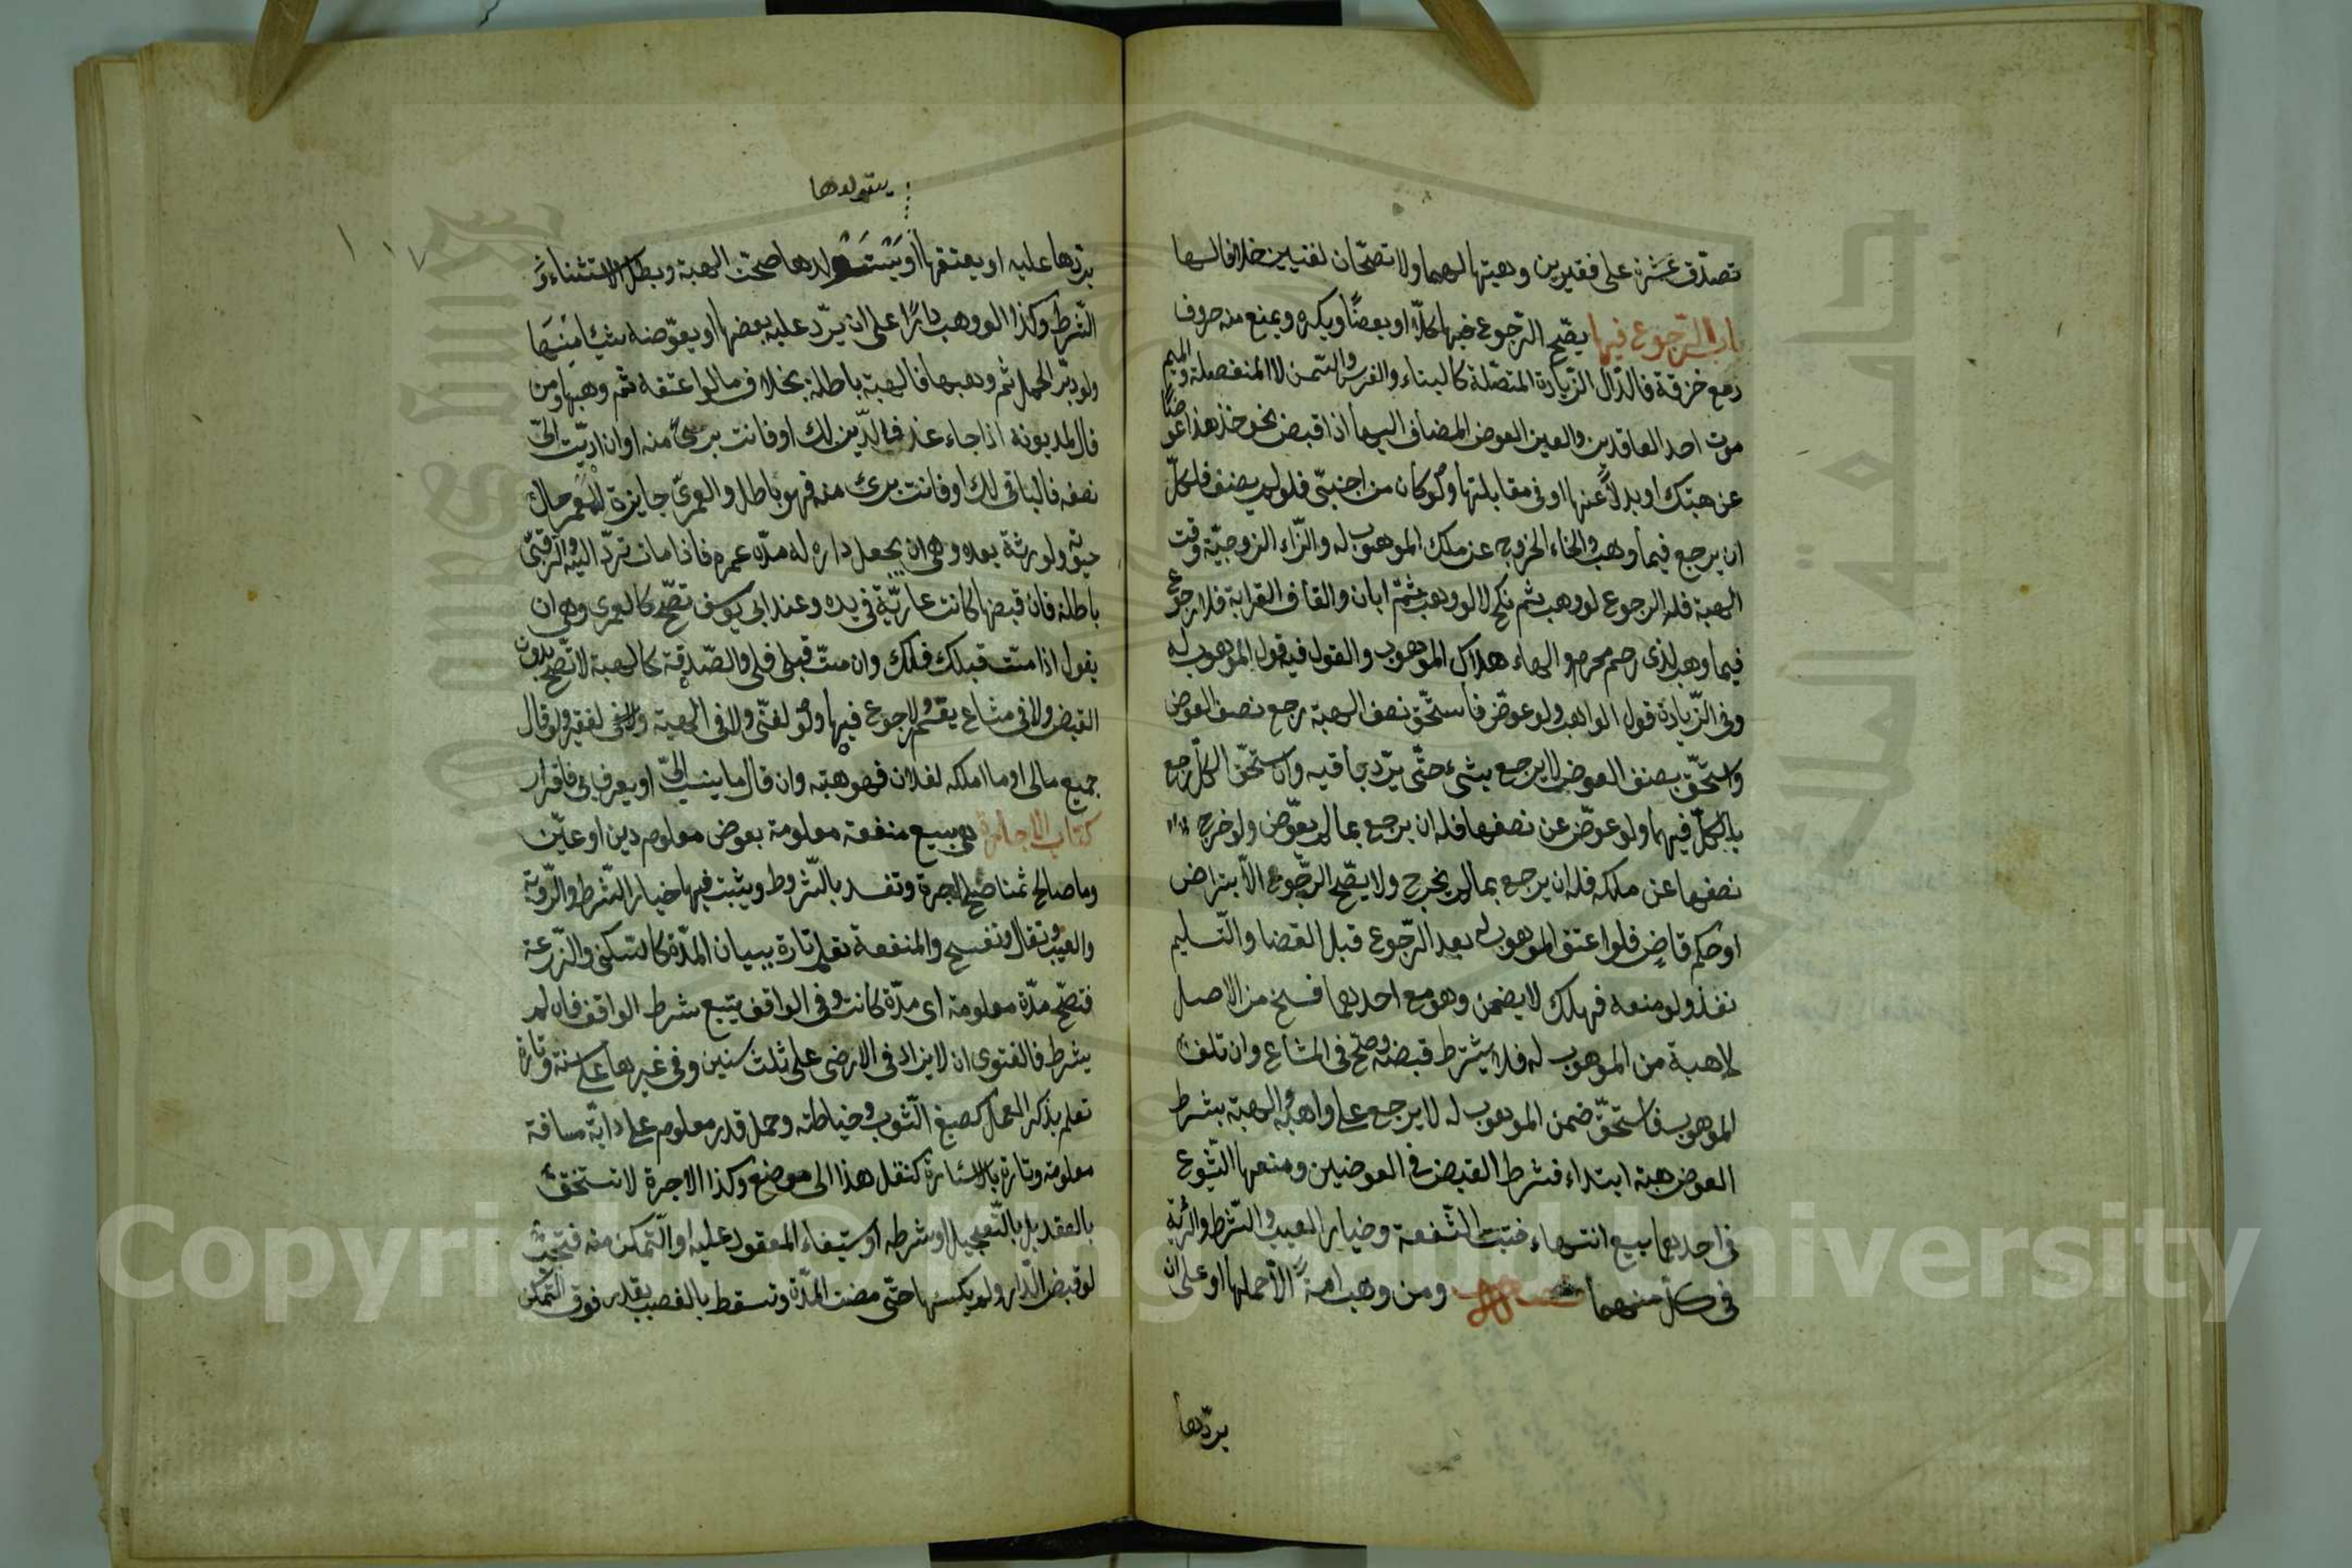 تصدّق عشرة على فقيرين وهبتها لهما ولا تصحّان لغنيين خلافا لهما
باب الرّجوع فيها يصحّ الرّجوع فيها كلّا او بعضًا ويكره ويمنع منه حروف
دمع خزقة فالدّال الزّيادة المتصّلة كالبناء والغرس والسّمن لا المنفصلة والميم
موت احد العاقدين والعين العوض المضاف اليها اذا قبض نحو خذ هذا عوضًا
عن هبتك او بدلًا عنها او في مقابلتها ولو كان من اجنبيّ فلو لم يضف فلكلّ
ان يرجع فيما وهب والخاء الخروج عن ملك الموهوب له والزّاء الزوجيّة وقت
الهبة فله الرجوع لو وهب ثم نكح لا لو وهب ثمّ ابان والقاف القرابة فلا رجوع
فيما وهب لذى رحم محرم والهاء هلاك الموهوب والقول فيه قول الموهوب له
وفي الزّيادة قول الواهب ولو عوّض فاستحّق نصف الهبة رجع نصف العوض
واستحّق نصف العوض لا يرجع بشيء حتّى يردّ باقيه وان استحقّ الكلّ رجع
بالكلّ فيهما ولو عوّض عن نصفها فله ان يرجع بما لم يعوّض ولو خرج
نصفها عن ملكه فله ان يرجع بما لم يخرج ولا يصّح الرجّوع الّا بتراض
او حكم قاض فلو اعتق الموهوب له بعد الرّجوع قبل القضا والتّسليم
نفذ ولو منعه فهلك لا يضمن وهو مع احديهما فسخ من الاصل
لا هبة من الموهوب له فلا يشترط قبضه وصحّ في المشاع وان تلف
الموهوب فاستحقّ ضمن الموهوب له لا يرجع على واهبه والهبة بشرط
العوض هبة ابتداء فشرط القبض في العوضين ومنعها الشّيوع
في احديهما بيع انتهاء فتبت الشّفعة وخيار العيب والشّرط والرئية
في كلّ منهما فصل ومن وهب امة الّا حملها او على ان
يردّها
يستولدها
يردّها عليه او يعتقها او ولدها صحّت الهبة وبطل الاستثناء و
الشّرط وكذا لو وهب دارًا على ان يردّ عليه بعضها او يعوّضه شيئا منها
ولو دبّر الحمل ثم وهبها فالهبة باطلة بخلاف ما لو اعتقه ثم وهبها ومن
قال لمديونه اذا جاء غد فالدّين لك او فانت برئ منه او ان ادّيت اليّ
نصفه فالباقي لك او فانت برئ منه فهو باطل والعمرىّ جايزة للمعمر حال
حيوته ولورثة بعده وهي ان يجعل داره له مدّه عمره فاذا مات تردّ اليه والرّقبىّ
باطلة فان قبضها كانت عاريّة في يده وعند ابي يوسف تصّح كالعمرى وهي ان
يقول اذا متّ قبلك فلك وان متّ قبلي فلي والصّدقة كالهبة لا تصّح بدون
القبض ولا في مشاع يقسم ولا رجوع فيها ولو لغنّى ولا في الهبة لفقير ولو قال
جميع مالي او ما املكه لفلان فهو هبة وان قال ما ينسب اليّ او يعرف بي فاقرار
كتاب الاجارة هي بيع منفعة معلومة بعوض معلوم دين او عيّن
وما صالح ثمنا صلح اجرة وتفسد بالشّروط ويثبت فيها خيار الشّرط والرّوية
والعيب وتقال وتفسح والمنفعة تعلم تارة ببيان المدّة كالسّكنى والزّرعة
فتصّح مدّة معلومة اى مدّة كانت وفي الواقف يتبع شرط الواقف فان لم
يشرط فالفتوى ان لا يزاد في الارضى على ثلث سنين وفي غيرها على سنة وتارة
تعلم بذكر العمل كصبغ الثّوب وخياطته وحمل قدر معلوم على دابّة مسافة
معلومة وتارة بالاشارة كنقل هذا الى موضع وكذا الاجرة لا تستحقّ
بالعقد بل بالتّعجيل او شرطه او ستيفاء المعقود عليه او التّمكن منه فتجب
لو قبض الدّار ولم يسكنها حتّى مضت المدّة وتسقط بالغصب بقدر فوق التّمكن
Copyright © King Saud University